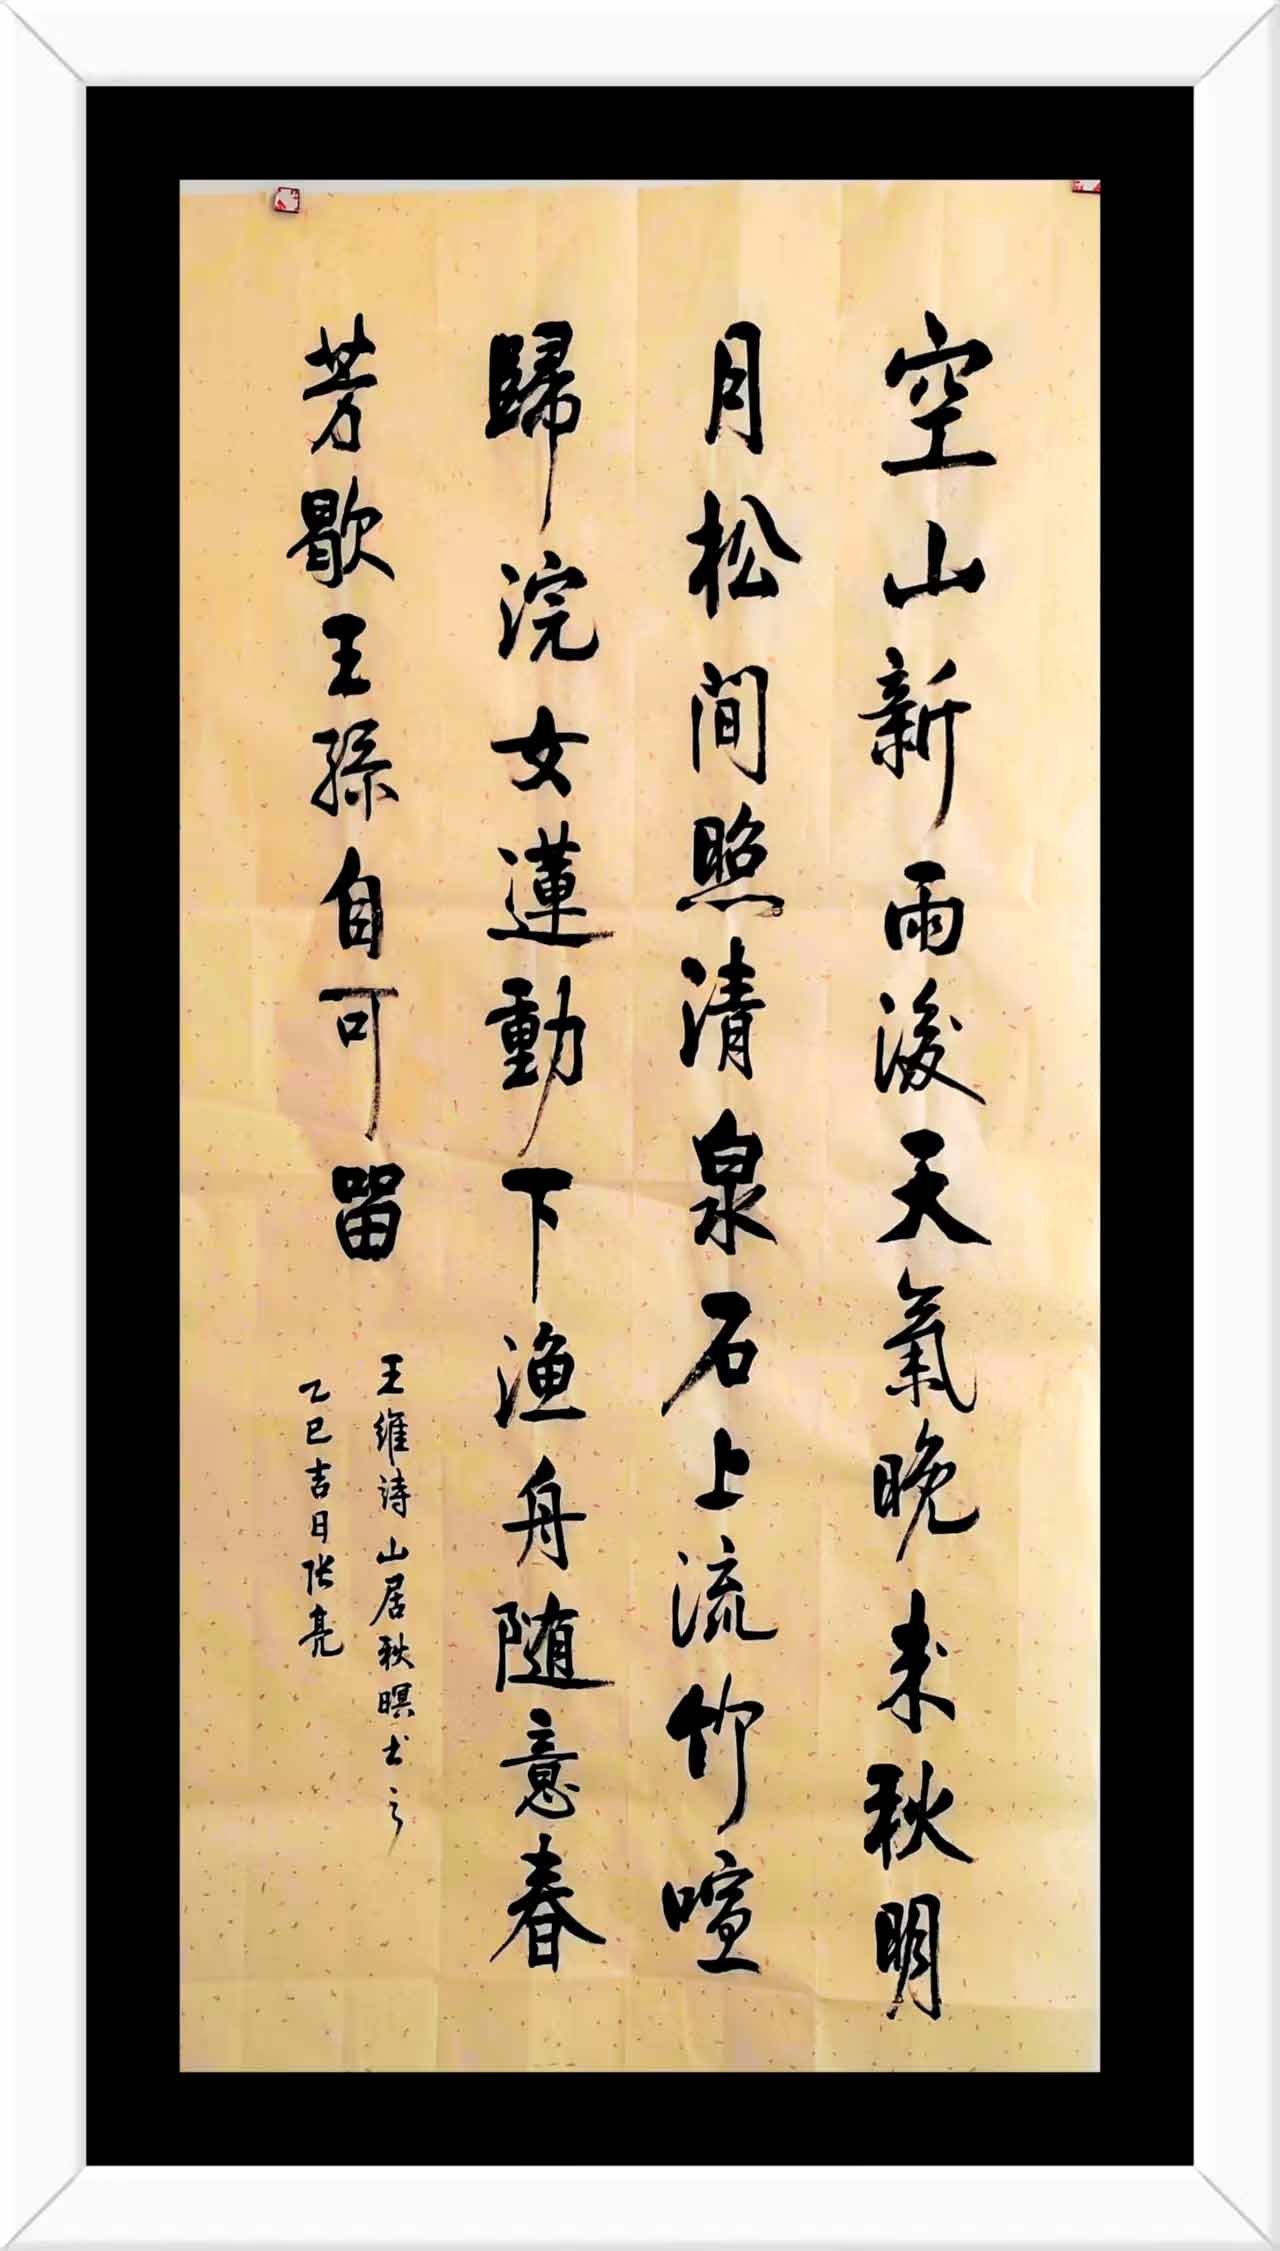 空山新雨後天氣晚来秋明
月松间照清泉石上流竹喧
歸浣女蓮動下渔舟随意春
芳歇王孫自可留
王維诗山居秋暝书之
乙巳吉日张亮